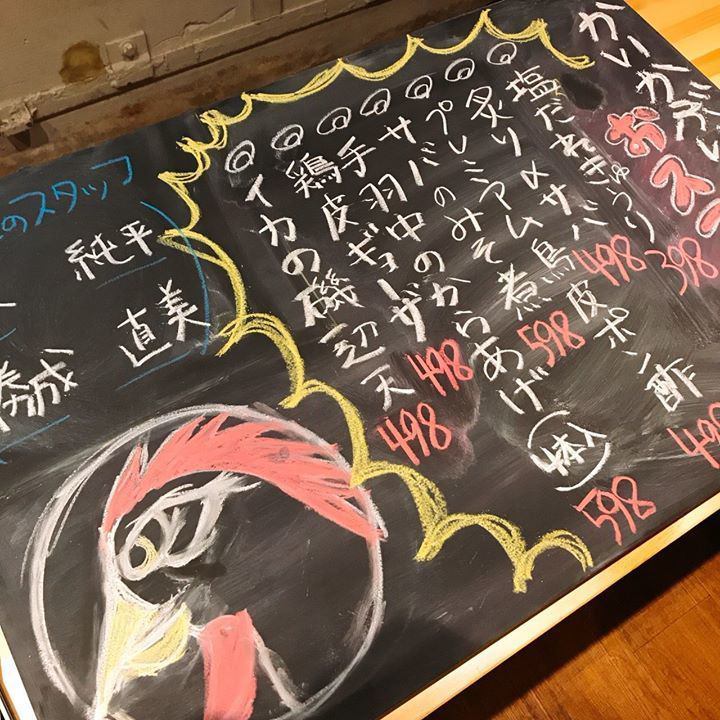 おスス
◎塩だれきゅうり 398
◎炙り〆サバ 498
◎プレミアム鳥皮ポン酢 498
◎サバのみそ煮 598
◎手羽中のからあげ (4本入) 598
◎鶏皮ギョーザ 498
◎イカの磯辺天 498
のスタッフ
純平
直美
勝成